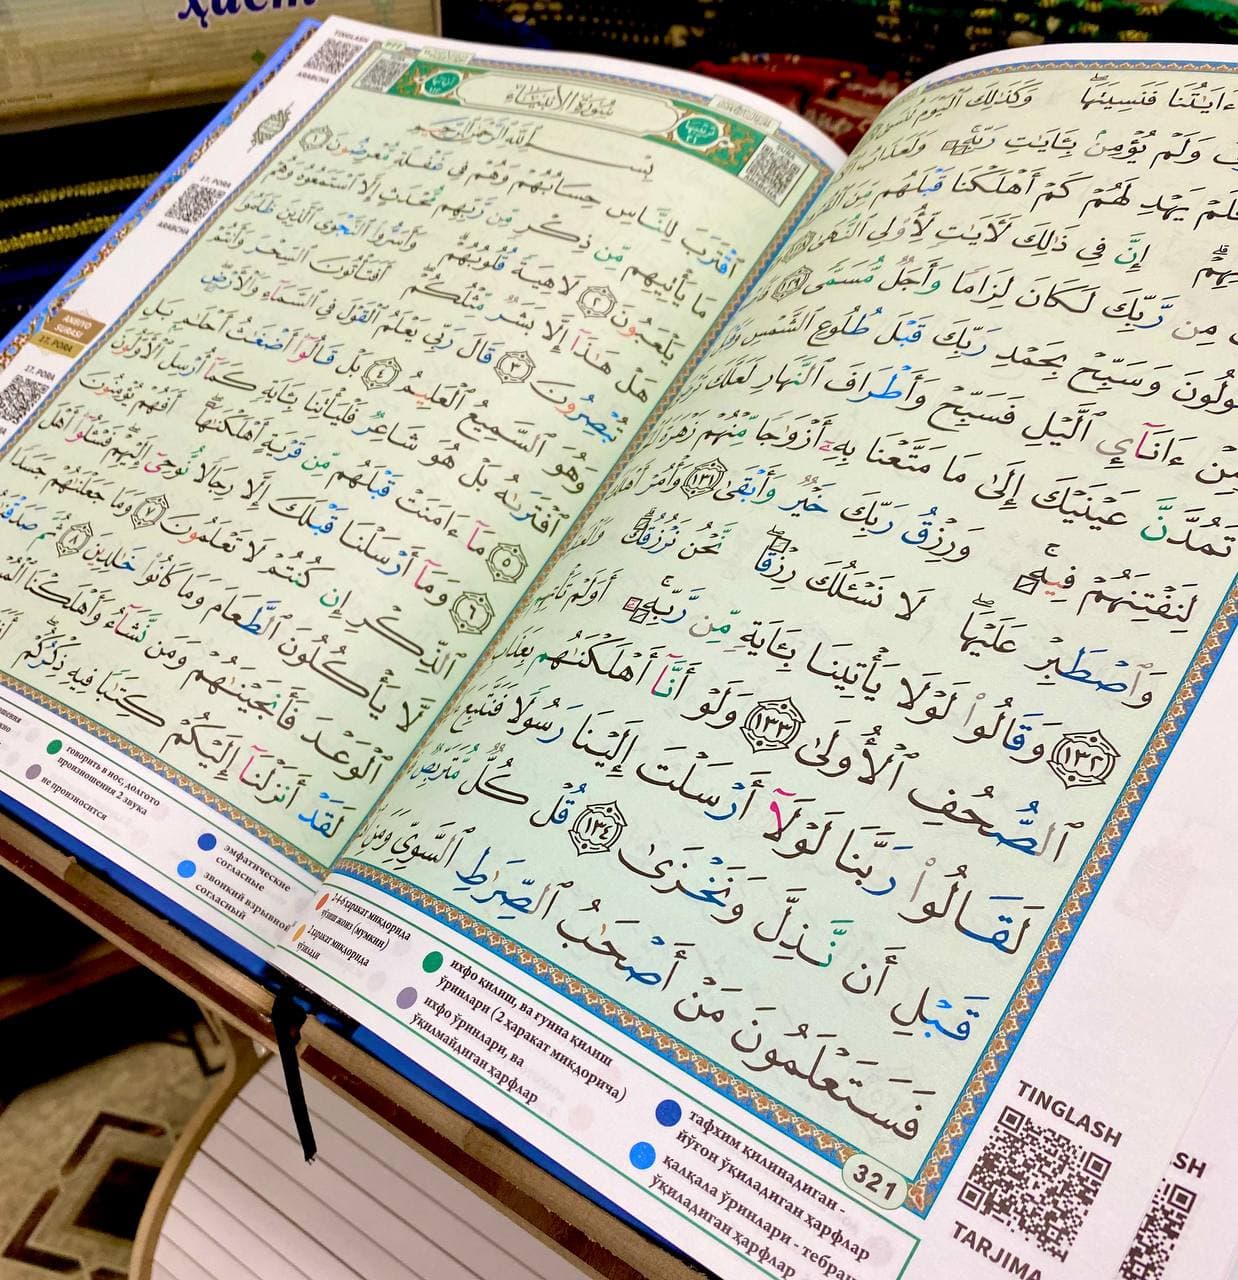 ءَايَٰتُنَا فَنَسِيتَهَا ۖ وَكَذَٰلِكَ ٱلْيَوْمَ
وَلَمْ يُؤْمِنۢ بِـَٔايَٰتِ رَبِّهِۦ ۚ وَلَعَذَابُ
يَهْدِ لَهُمْ كَمْ أَهْلَكْنَا قَبْلَهُم مِّنَ
إِنَّ فِى ذَٰلِكَ لَـَٔايَٰتٍ لِّأُو۟لِى ٱلنُّهَىٰ
مِن رَّبِّكَ لَكَانَ لِزَامًا وَأَجَلٌ مُّسَمًّى ١٢٩
وَسَبِّحْ بِحَمْدِ رَبِّكَ قَبْلَ طُلُوعِ ٱلشَّمْسِ
ءَانَآئِ ٱلَّيْلِ فَسَبِّحْ وَأَطْرَافَ ٱلنَّهَارِ لَعَلَّكَ
تَمُدَّنَّ عَيْنَيْكَ إِلَىٰ مَا مَتَّعْنَا بِهِۦٓ أَزْوَٰجًا مِّنْهُمْ زَهْرَةَ
لِنَفْتِنَهُمْ فِيهِ ۚ وَرِزْقُ رَبِّكَ خَيْرٌ وَأَبْقَىٰ ١٣١ وَأْمُرْ أَهْلَكَ
وَٱصْطَبِرْ عَلَيْهَا ۖ لَا نَسْـَٔلُكَ رِزْقًا ۖ نَّحْنُ نَرْزُقُكَ ۗ
١٣٢ وَقَالُوا۟ لَوْلَا يَأْتِينَا بِـَٔايَةٍ مِّن رَّبِّهِۦٓ ۚ أَوَلَمْ تَأْتِهِم
ٱلصُّحُفِ ٱلْأُولَىٰ ١٣٣ وَلَوْ أَنَّآ أَهْلَكْنَٰهُم بِعَذَابٍ
لَقَالُوا۟ رَبَّنَا لَوْلَآ أَرْسَلْتَ إِلَيْنَا رَسُولًا فَنَتَّبِعَ
قَبْلِ أَن نَّذِلَّ وَنَخْزَىٰ ١٣٤ قُلْ كُلٌّ مُّتَرَبِّصٌ
فَسَتَعْلَمُونَ مَنْ أَصْحَٰبُ ٱلصِّرَٰطِ ٱلسَّوِىِّ وَمَنِ
321
2-4-6 ҳаракат миқдорида
чўзиш жоиз (мумкин)
2 ҳаракат миқдорида
чўзилади
ихфо қилиш, ва ғунна қилиш
ўринлари (2 ҳаракат миқдорича)
ихфо ўринлари, ва
ўқилмайдиган ҳарфлар
тафхим қилинадиган -
йўғон ўқиладиган ҳарфлар
қалқала ўринлари - тебран
ўқиладиган ҳарфлар
TINGLASH
TARJIMA
SH
سُورَةُ الْأَنْبِيَاءِ
بِسْمِ ٱللَّهِ ٱلرَّحْمَٰنِ ٱلرَّحِيمِ
ٱقْتَرَبَ لِلنَّاسِ حِسَابُهُمْ وَهُمْ فِى غَفْلَةٍ مُّعْرِضُونَ ١
مَا يَأْتِيهِم مِّن ذِكْرٍ مِّن رَّبِّهِم مُّحْدَثٍ إِلَّا ٱسْتَمَعُوهُ وَهُمْ
يَلْعَبُونَ ٢ لَاهِيَةً قُلُوبُهُمْ ۗ وَأَسَرُّوا۟ ٱلنَّجْوَى ٱلَّذِينَ ظَلَمُوا۟
هَلْ هَٰذَآ إِلَّا بَشَرٌ مِّثْلُكُمْ ۖ أَفَتَأْتُونَ ٱلسِّحْرَ وَأَنتُمْ
تُبْصِرُونَ ٣ قَالَ رَبِّى يَعْلَمُ ٱلْقَوْلَ فِى ٱلسَّمَآءِ وَٱلْأَرْضِ ۖ
وَهُوَ ٱلسَّمِيعُ ٱلْعَلِيمُ ٤ بَلْ قَالُوٓا۟ أَضْغَٰثُ أَحْلَٰمٍۭ بَلِ
ٱفْتَرَىٰهُ بَلْ هُوَ شَاعِرٌ فَلْيَأْتِنَا بِـَٔايَةٍ كَمَآ أُرْسِلَ ٱلْأَوَّلُونَ
٥ مَآ ءَامَنَتْ قَبْلَهُم مِّن قَرْيَةٍ أَهْلَكْنَٰهَآ ۖ أَفَهُمْ يُؤْمِنُونَ
٦ وَمَآ أَرْسَلْنَا قَبْلَكَ إِلَّا رِجَالًا نُّوحِىٓ إِلَيْهِمْ ۖ فَسْـَٔلُوٓا۟ أَهْلَ
ٱلذِّكْرِ إِن كُنتُمْ لَا تَعْلَمُونَ ٧ وَمَا جَعَلْنَٰهُمْ جَسَدًا
لَّا يَأْكُلُونَ ٱلطَّعَامَ وَمَا كَانُوا۟ خَٰلِدِينَ ٨ ثُمَّ صَدَقْنَٰهُمُ
ٱلْوَعْدَ فَأَنجَيْنَٰهُمْ وَمَن نَّشَآءُ وَأَهْلَكْنَا
لَقَدْ أَنزَلْنَآ إِلَيْكُمْ كِتَٰبًا فِيهِ ذِكْرُكُمْ ۖ
TINGLASH
ARABCHA
17. PORA
ARABCHA
ANBIYO
SURASI
17. PORA
17. PORA
говорить в нос, долгото
произношения 2 звука
не произносится
эмфатические
согласные
звонкий взрывной
согласный
ҳаёт